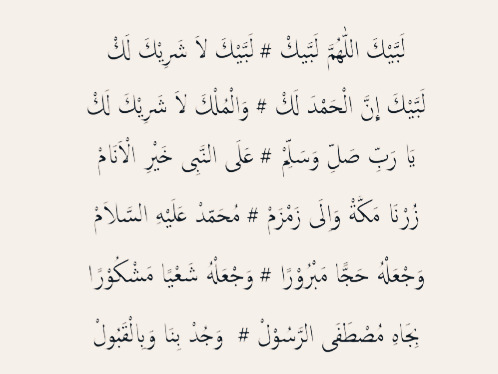 لَبَّيْكَ اللّٰهُمَّ لَبَّيكْ # لَبَّيْكَ لاَ شَرِيْكَ لَكْ
لَبَّيْكَ إِنَّ الْحَمْدَ لَكْ # وَالْمُلْكَ لاَ شَرِيْكَ لَكْ
يَا رَبِّ صَلِّ وَسَلِّمْ # عَلَى النَّبِى خَيْرِ الْاَنَامْ
زُرْنَا مَكَّةْ وَإِلَى زَمْزَمْ # مُحَمّدْ عَلَيْهِ السَّلاَمْ
وَجْعَلْهُ حَجًّا مَبْرُوْرًا # وَجْعَلْهُ شَعْيًا مَشْكُوْرًا
بِجَاهِ مُصْطَفَى الرَّسُوْلْ # وَجُدْ بِنَا وَبِالْقَبُولْ